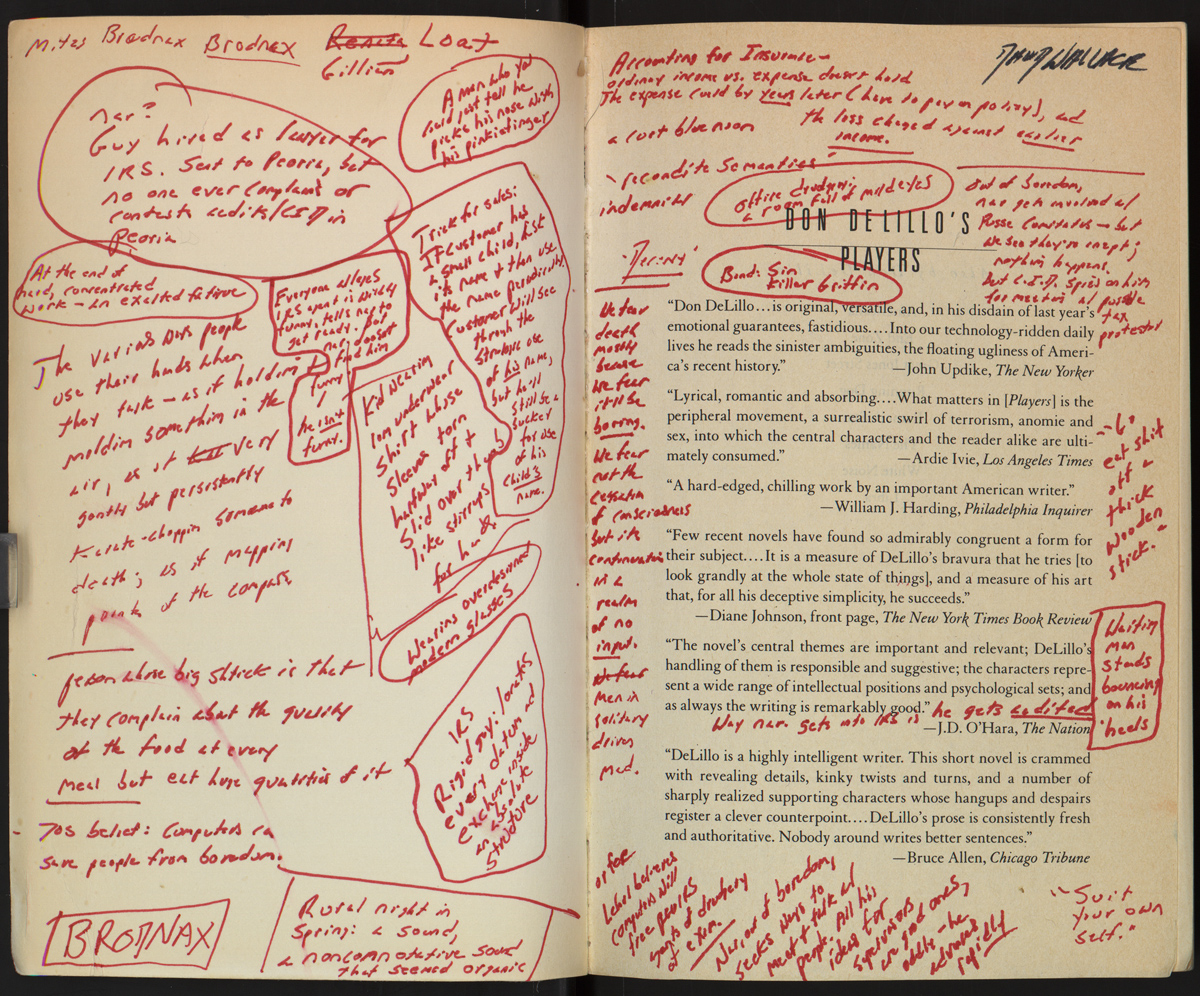 Mites Brodnax Brodnax Loaf
Gillian
A man who you
could just tell he
picks his nose with
his pinkie finger
Nar?
Guy hired as lawyer for
IRS. Sent to Peoria, but
no one ever complains or
contests audits/CID in
Peoria
At the end of
hard, concentrated
work – an exalted fatigue
Everyone alleges
IRS agent is wildly
funny, tells nar to
get ready. But
nar doesn't
find him
funny
he isn't
funny.
Trick for sales:
If customer has
a small child, ask
its name & then use
the name periodically.
Customer will see
through the
strategic use
of his name,
but he'll
still be a
sucker
for use
of his
child's
name.
The various ways people
use their hands when
they talk – as if holding
molding something in the
air, as if very
gently but persistently
karate-chopping someone to
death; as if mapping
points of the compass
Kid wearing
long underwear
shirt whose
sleeves torn
halfway off &
slid over the
like stirrups
for hands
Wearing overdesigned
modern glasses
person whose big shtick is that
they complain about the quality
of the food at every
meal but eat huge quantities of it
IRS
Rigid guy: locates
every datum and
exchange inside
an absolute
structure
70s belief: Computers can
save people from boredom.
BRODNAX
Rural night in
Spring: a sound,
a noncomnotative sound
that seemed organic
Accounting for Insurance –
ordinary income vs. expense doesn't hold
The expense could be years later (have to pay on policy), and
the loss charged against earlier
income.
a curt blue noon
"recondite semantics"
indemnitor
office drudgery:
a room full of mild eyes
Out of boredom,
nar gets involved w/
Posse Comitatus – but
we see they're inept;
nothing happens.
But C.I.D. spies on him
for meeting w/ possible
tax
protestor
DON DELILLO'S
PLAYERS
Band: Sin
Killer Griffin
We fear
death
mostly
because
we fear
it'll be
boring.
We fear
not the
cessation
of consciousness
but its
continuation
in a
realm
of no
input.
Men in
solitary
driven
mad.
"Don DeLillo...is original, versatile, and, in his disdain of last year's
emotional guarantees, fastidious....Into our technology-ridden daily
lives he reads the sinister ambiguities, the floating ugliness of Ameri-
ca's recent history."
—John Updike, The New Yorker
"Lyrical, romantic and absorbing....What matters in [Players] is the
peripheral movement, a surrealistic swirl of terrorism, anomie and
sex, into which the central characters and the reader alike are ulti-
mately consumed."
—Ardie Ivie, Los Angeles Times
"A hard-edged, chilling work by an important American writer."
—William J. Harding, Philadelphia Inquirer
"Few recent novels have found so admirably congruent a form for
their subject....It is a measure of DeLillo's bravura that he tries [to
look grandly at the whole state of things], and a measure of his art
that, for all his deceptive simplicity, he succeeds."
—Diane Johnson, front page, The New York Times Book Review
"The novel's central themes are important and relevant; DeLillo's
handling of them is responsible and suggestive; the characters repre-
sent a wide range of intellectual positions and psychological sets; and
as always the writing is remarkably good."
—J.D. O'Hara, The Nation
Way nar gets into IRS is he gets audited
"DeLillo is a highly intelligent writer. This short novel is crammed
with revealing details, kinky twists and turns, and a number of
sharply realized supporting characters whose hangups and despairs
register a clever counterpoint....DeLillo's prose is consistently fresh
and authoritative. Nobody around writes better sentences."
—Bruce Allen, Chicago Tribune
eat shit
off a
thick
wooden
stick."
Waiting
man
stands
bouncing
on his
heels
believes
computers will
free
of drudgery
of exam.
Nar, out of boredom,
seeks ways to
meet & talk w/
people. All his
ideas for
supervisors
are good ones,
oddly – he
advances
rapidly
"Suit
your own
self."